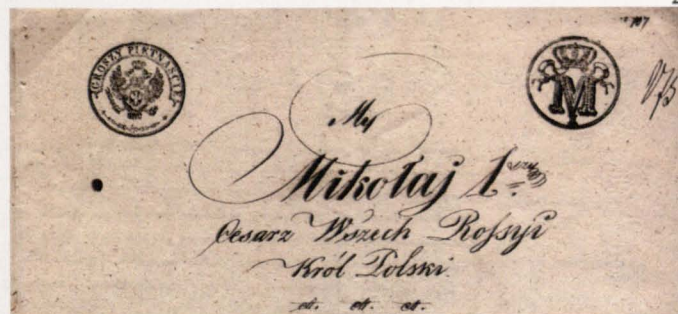 GROSZY PIĘTNAŚCIE
M
My
Mikołaj 1.
Cesarz Wszech Rossyi
Król Polski
etc. etc. etc.